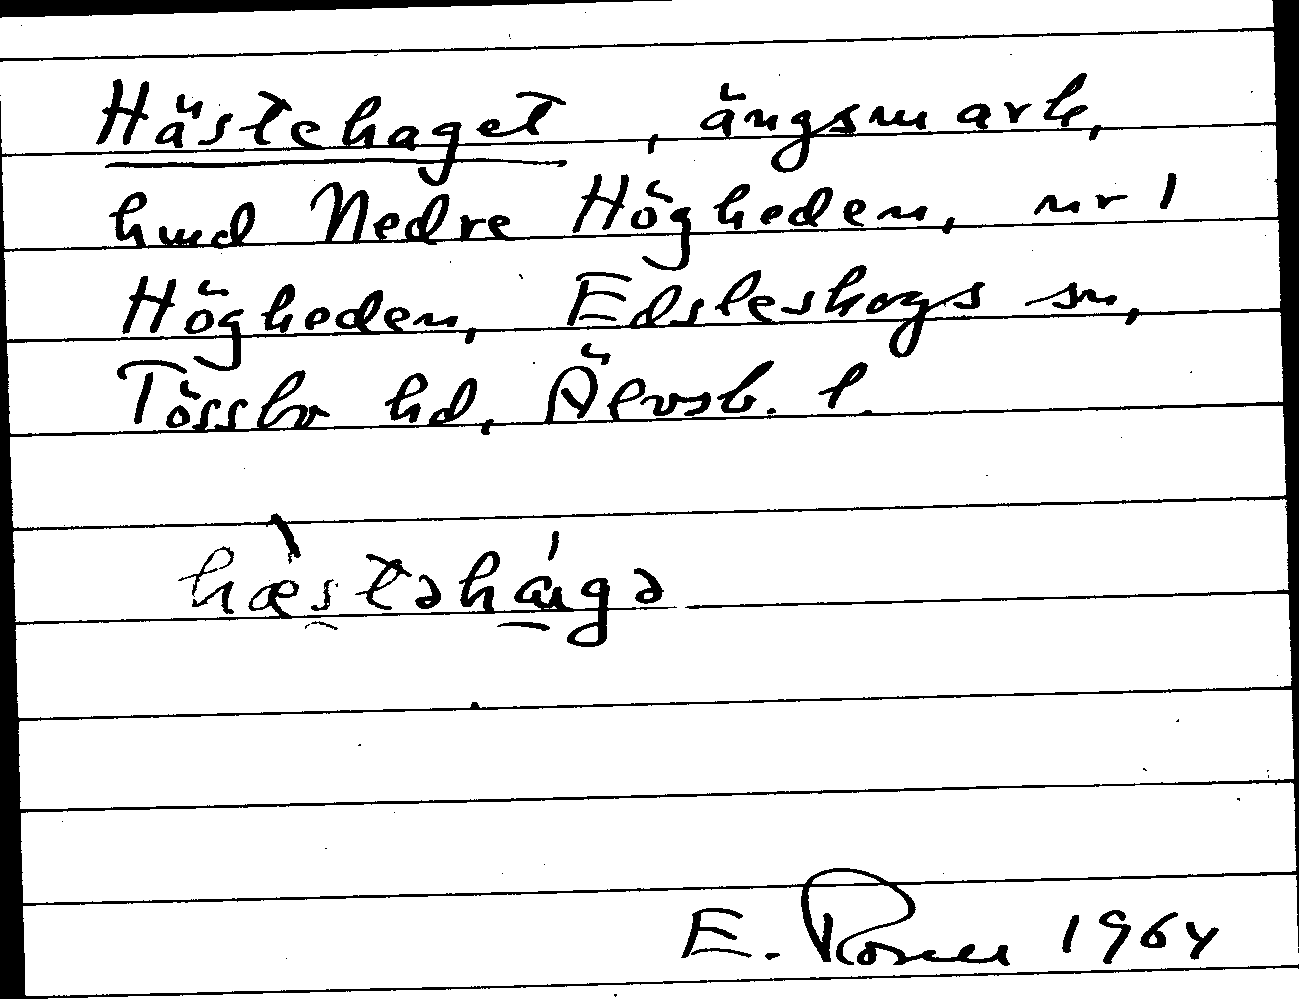 Hästehaget, ängsmark,
hmd Nedre Högheden, nr 1
Högheden, Edsleskogs sn,
Tössbo hd, Älvsb. l.
hæ̀stəhágə
E. Rosell 1964